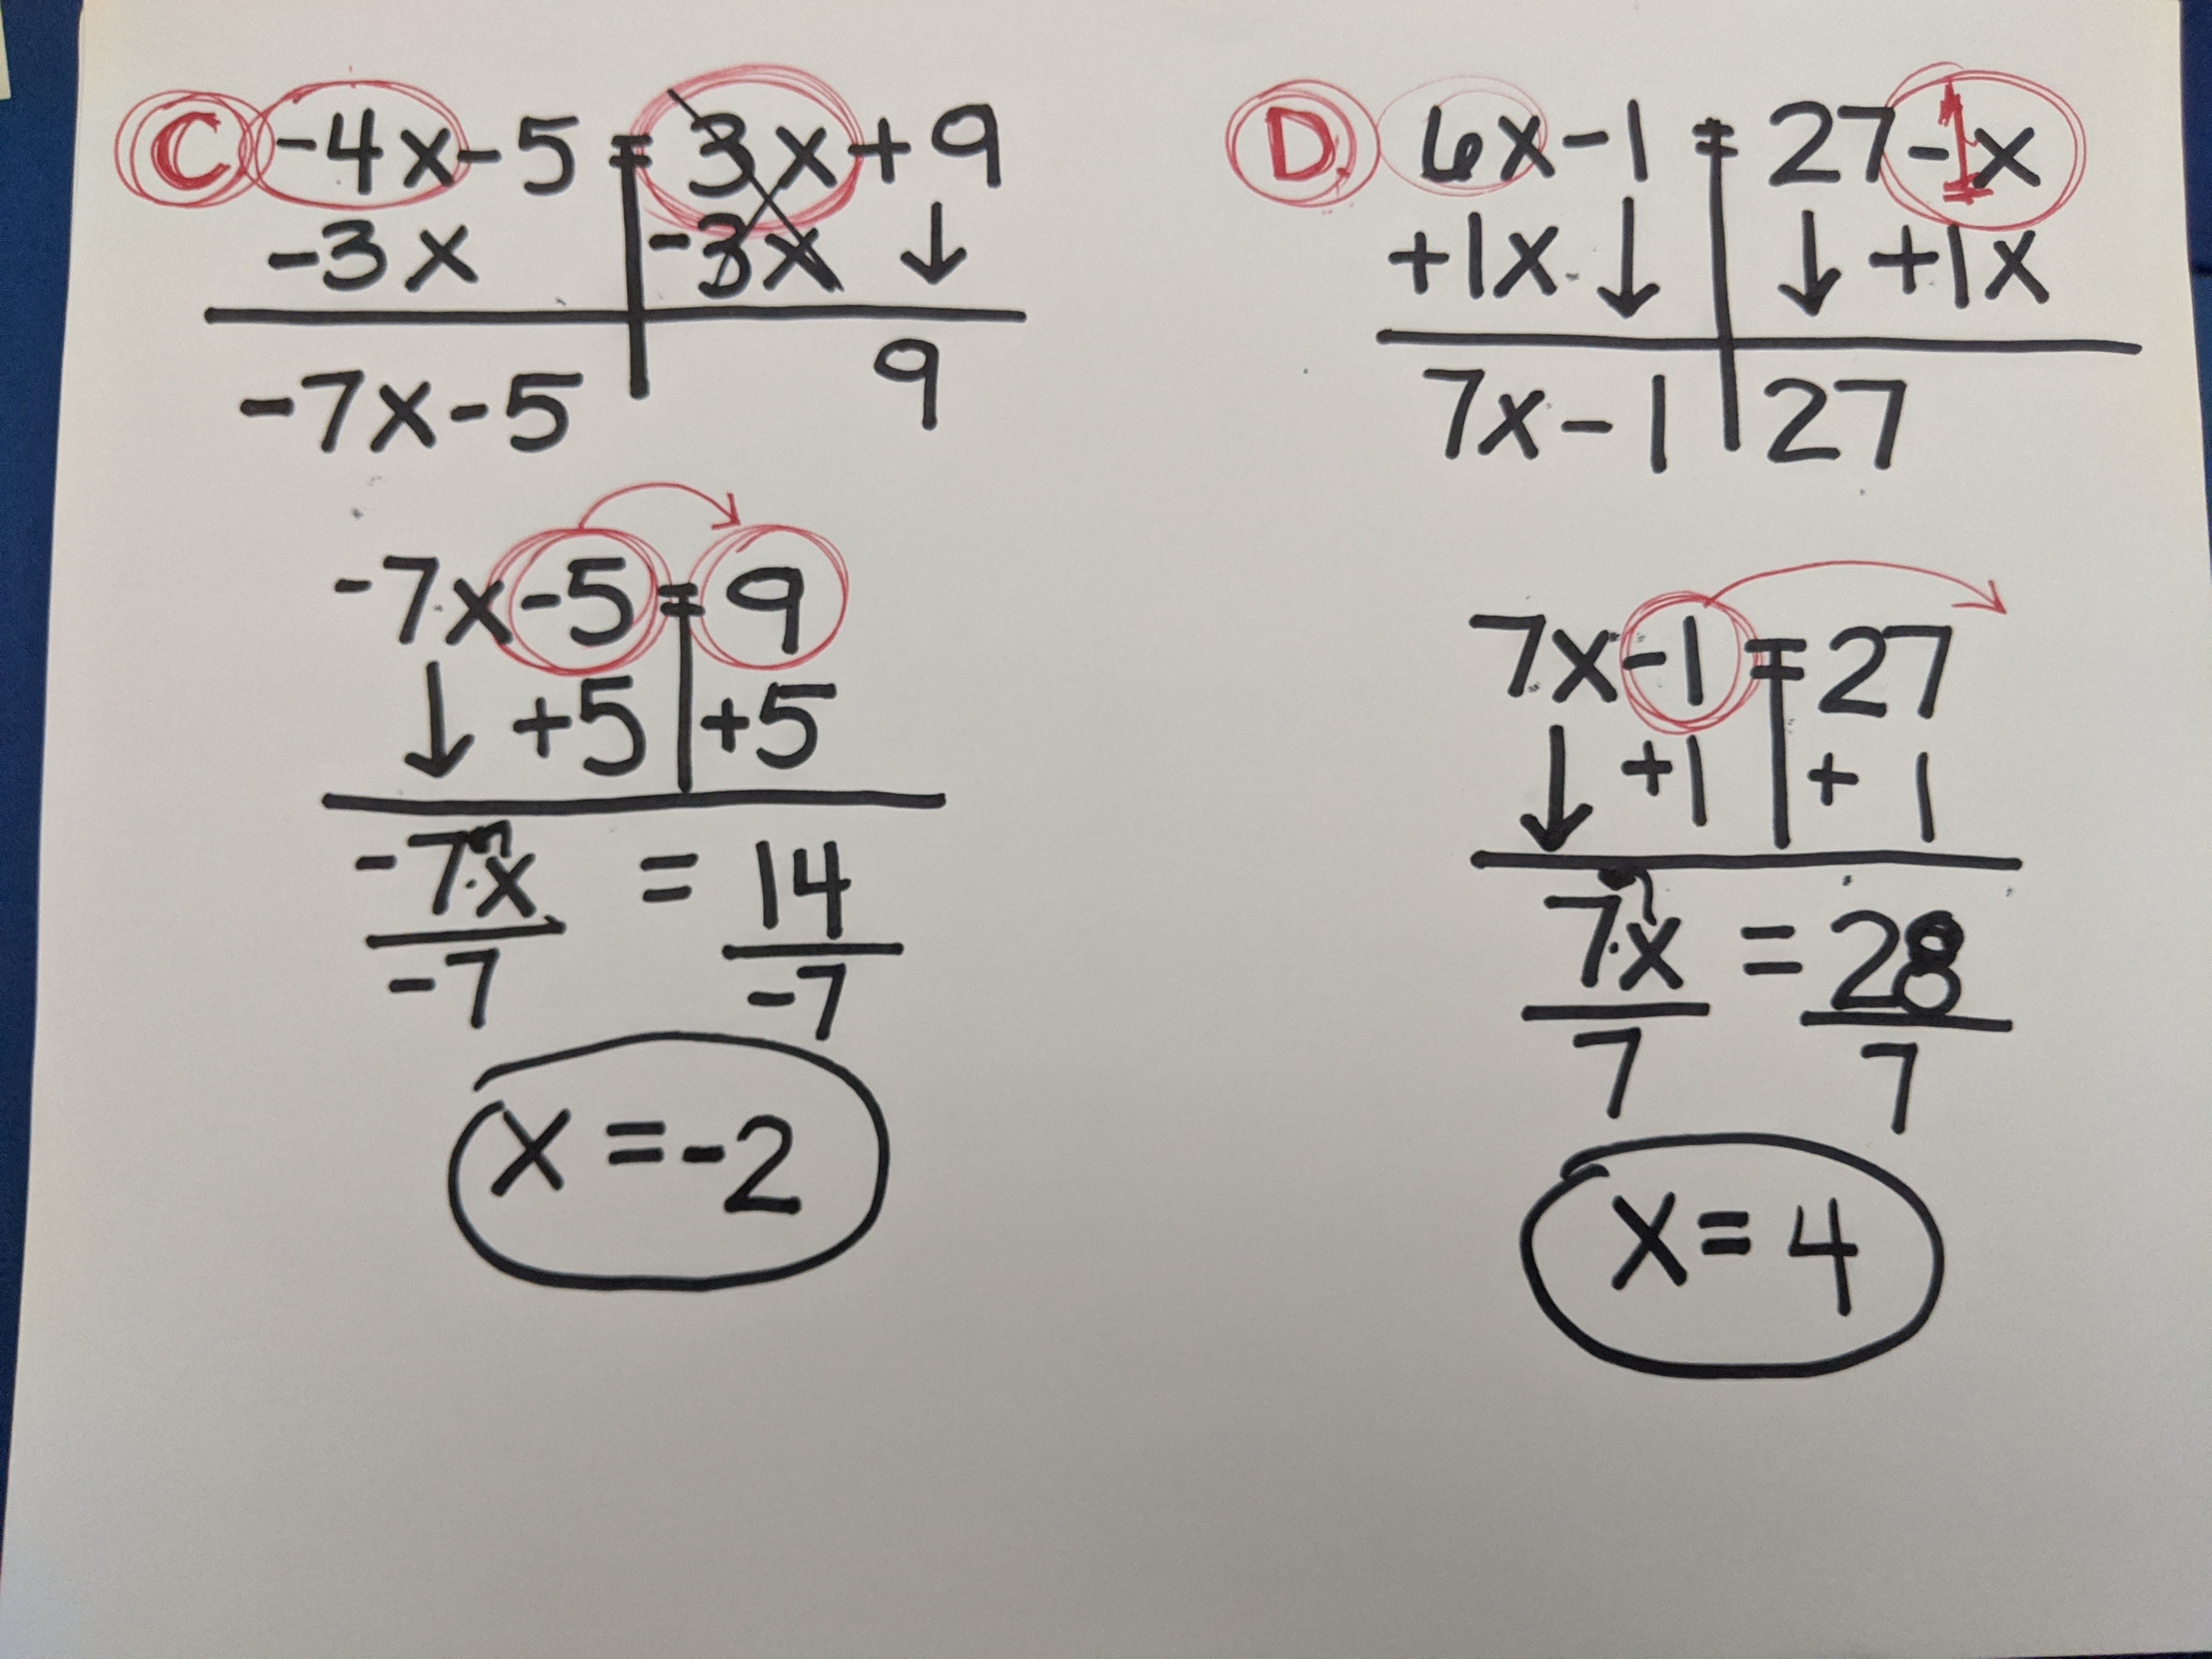 C -4x-5 = 3x+9
-3x -3x ↓
-7x-5 9
-7x-5 = 9
↓ +5 +5
-7·x = 14
-7 -7
x = -2
D. 6x-1 = 27-1x
+1x ↓ ↓ +1x
7x-1 27
7x-1 = 27
↓ +1 + 1
7·x = 28
7 7
x = 4